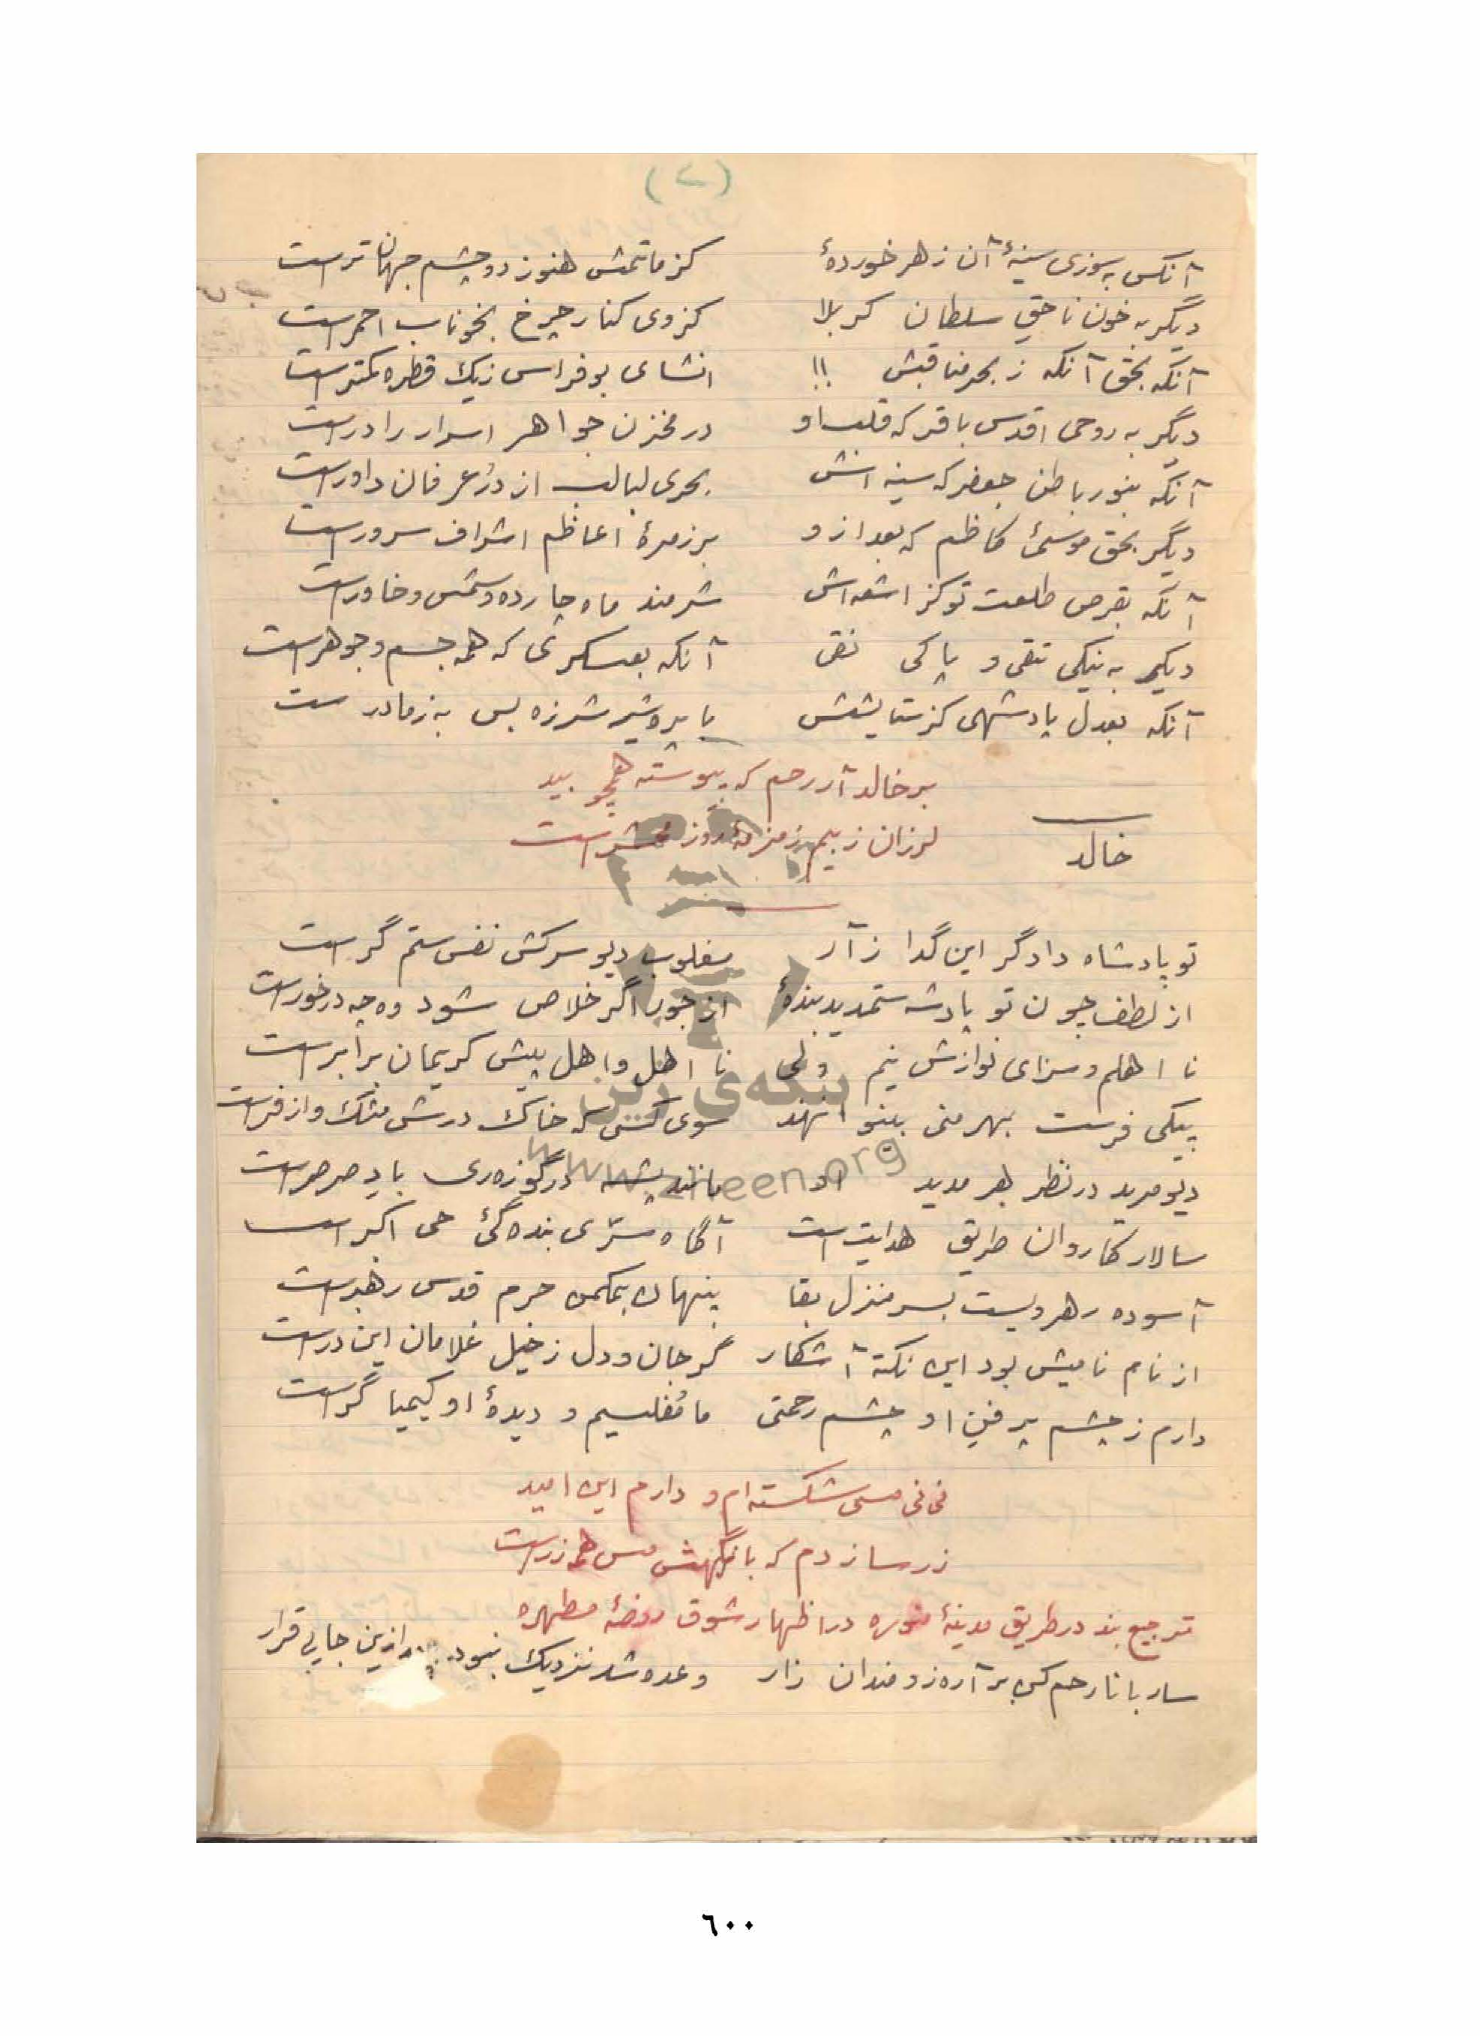 (٢)
آنکس به سوزی سینهٔ آن زهر خوردهٔ کز ماتمش هنوز دو چشم جهان ترست
دیگر به خون ناحق سلطان کربلا کزوی کنار چرخ بخوناب احمرست
آنکه بحق آنکه ز بحر مناقبش !! انشای بوفراس زیک قطره کمترست
دیگر به روحی اقدس باقر که قلب او در مخزن جواهر اسرار را درست
آنکه بنور باطن جعفر که سینه اش بحری لبالب از دُر عرفان داورست
دیگر بحق موسئ کاظم که بعد ازو بر زمرهٔ اعاظم اشراف سرورست
آنکه بقرص طلعت تو کز اشعه اش شرمند ماه چارده و شمس و خاورست
دیگر به نیکی تقی و پاکی نقی آنکه بعسکری که همه جسم و جوهرست
آنکه بعدل پادشهی کز ستایشش با بره شیر شرزه بس به ز مادرست
بر خالد آر رحم که پیوسته همچو بید
لرزان زبیم زمزمهٔ روز محشرست
خالد
تو پادشاه دادگر این گدا زار مغلوب دیو سرکش نفس ستم گرست
از لطف چون تو پادشه ستمدید بندهٔ از جور اگر خلاص شود وه چه درخورست
نا اهلم و سزای نوازش نیم ولی نا اهل و اهل پیش کریمان برابرست
پیکی فرست بهر منی بینوا سوی کسی که خاک درش مشک و از فرست
دیو مرید در نظر هر مدید او مانند پشه درگوزه‌ری باد صرصرست
سالار کاروان طریق هدایت است آگاه سرّی بنده گئ حی اکبرست
آسوده رهرویست بسر منزل بقا پنهان بمکمن حرم قدس رهبرست
از نام نامیش بود این نکته آشکار گر جان و دل زخیل غلامان این درست
دارم ز چشم پر فن او چشم رحمتی ما مُفلسیم و دیدهٔ او کیمیا گرست
نی نی مسی شکسته ام و دارم این امید
زر سازدم که با نگهش مس همه زرست
ترجیع بند در طریق مدینهٔ منوره در اظهار شوق روضهٔ مطهره
ساربانا رحم کن بر آرزومندان زار وعده شد نزدیک نبود ازین جایی قرار
بنکەی ژین
www.zheen.org
٦٠٠